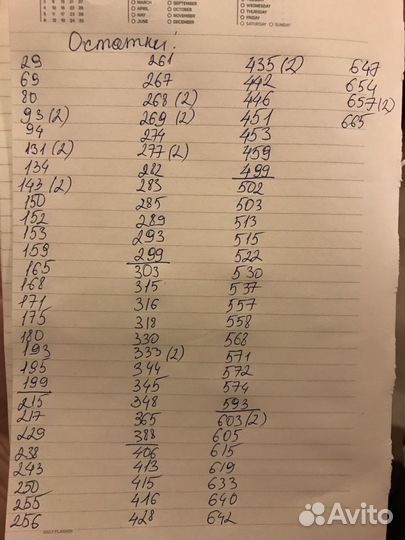 MARCH
APRIL
MAY
JUNE
SEPTEMBER
OCTOBER
NOVEMBER
DECEMBER
TUESDAY
WEDNESDAY
THURSDAY
FRIDAY
SATURDAY SUNDAY
Остатки!
29
69
80
93 (2)
94
131 (2)
134
143 (2)
150
152
153
159
165
168
171
175
180
193
195
199
215
217
229
238
243
250
255
256
261
267
268 (2)
269 (2)
274
277 (2)
282
283
285
289
293
299
303
315
316
318
330
333 (2)
344
345
348
365
388
406
413
415
416
428
435 (2)
442
446
451
453
459
499
502
503
513
515
522
530
537
557
558
568
571
572
574
593
603 (2)
605
615
619
633
640
642
647
654
657 (2)
665
DAILY PLANNER
Avito